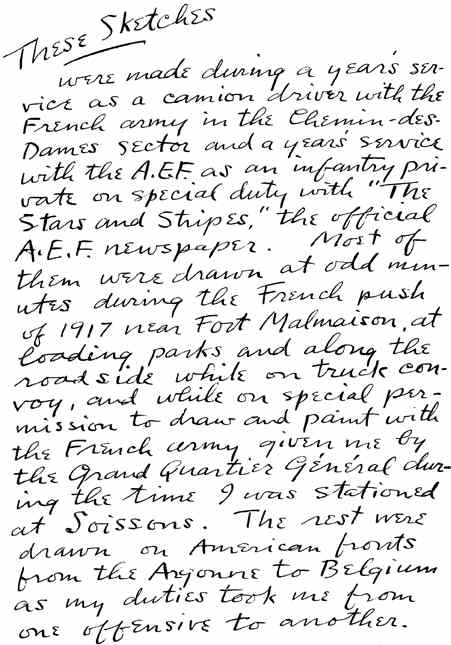 These Sketches
were made during a year's ser-
vice as a camion driver with the
French army in the Chemin-des-
Dames sector and a year's service
with the A.E.F. as an infantry pri-
vate on special duty with "The
Stars and Stripes," the official
A.E.F. newspaper. Most of
them were drawn at odd min-
utes during the French push
of 1917 near Fort Malmaison, at
loading parks and along the
roadside while on truck con-
voy, and while on special per-
mission to draw and paint with
the French army given me by
the Grand Quartier Général dur-
ing the time I was stationed
at Soissons. The rest were
drawn on American fronts
from the Argonne to Belgium
as my duties took me from
one offensive to another.